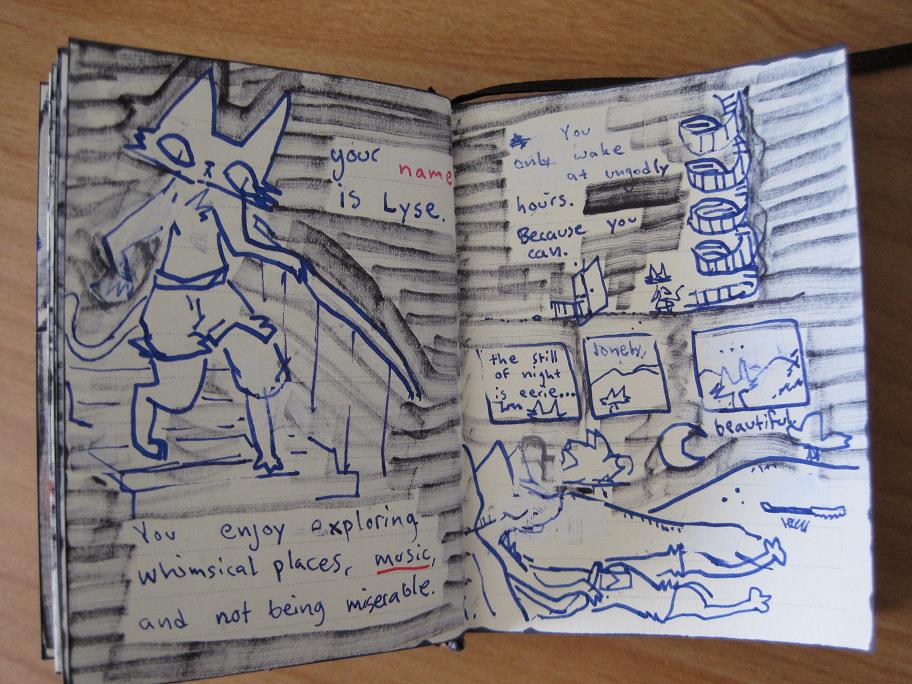 your name
is Lyse.
You enjoy exploring
whimsical places, music,
and not being miserable.
You
only wake
at ungodly
hours.
Because you
can.
the still
of night
is eerie...
lonely,
...
beautiful.